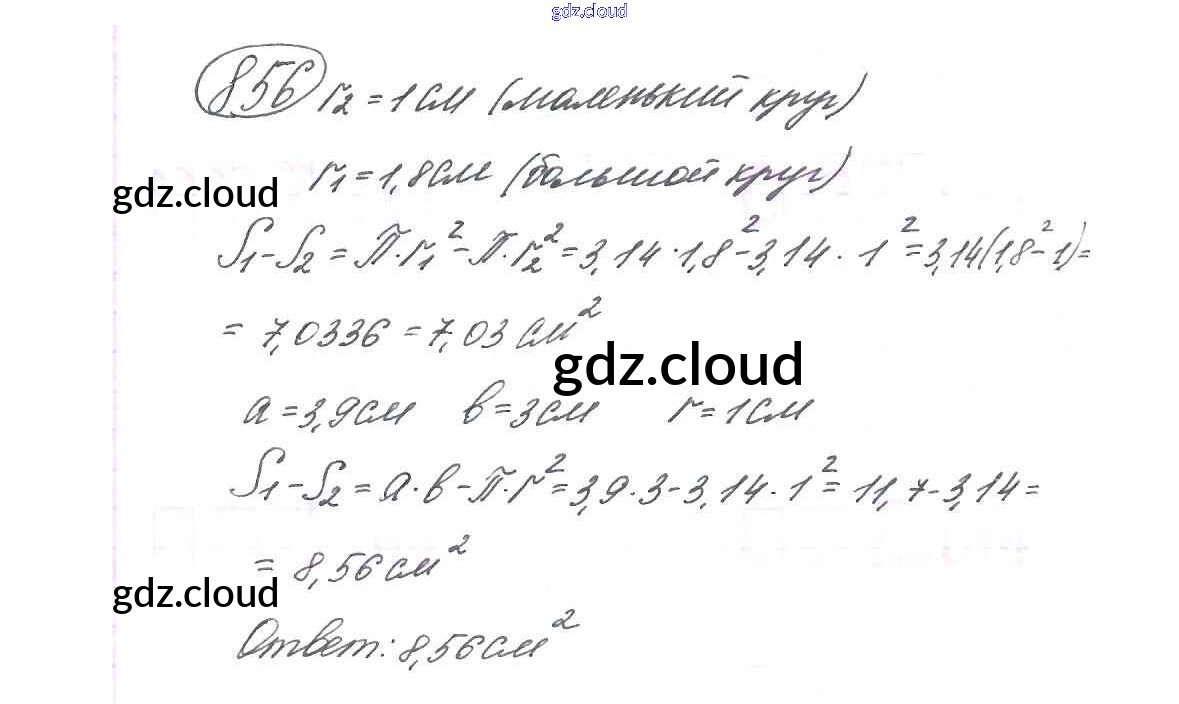 gdz.cloud
856 r₂ = 1 см (маленький круг)
r₁ = 1,8 см (большой круг)
gdz.cloud
S₁ - S₂ = П · r₁² - П · r₂² = 3,14 · 1,8² - 3,14 · 1² = 3,14(1,8² - 1) =
= 7,0336 = 7,03 см²
gdz.cloud
a = 3,9 см в = 3 см r = 1 см
S₁ - S₂ = a · в - П · r² = 3,9 · 3 - 3,14 · 1² = 11,7 - 3,14 =
= 8,56 см²
gdz.cloud
Ответ: 8,56 см²